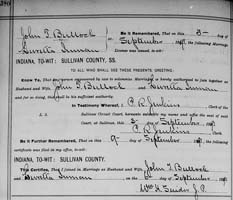 John T. Bullock
Luretta Inman
Be it Remembered, That on this 3- day of
September 189 , the following Marriage
License was issued, to-wit:
INDIANA, TO-WIT: SULLIVAN COUNTY, SS.
TO ALL WHO SHALL SEE THESE PRESENTS, GREETING:
Know Ye, That any person empowered by law to solemnize Marriages, is hereby authorized to join together as
Husband and Wife John T. Bullock and Luretta Inman
and for so doing, this shall be his sufficient authority.
In Testimony Whereof, I P. R. Jenkins Clerk of the
Sullivan Circuit Court, hereunto subscribe my name and affix the seal of said
Court, at Sullivan, this 3 day of September 189
P. R. Jenkins Clerk
Be it Further Remembered, That on this 9- day of September 189 , the following
certificate was filed in my office, to-wit:
INDIANA, TO-WIT: SULLIVAN COUNTY, SS.
This Certifies, That I joined in Marriage as Husband and Wife John T. Bullock
and Luretta Inman on the day of September 189
Wm H. J. P.